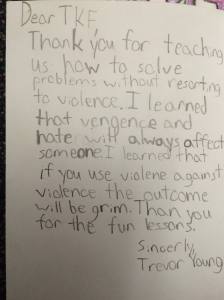 Dear TKF
Thank you for teaching
us how to solve
problems without resorting
to violence. I learned
that vengence and
hate will always affect
someone I learned that
if you use violene against
violence the outcome
will be grim. Than you
for the fun lessons.
Sincerly,
Trevor Young